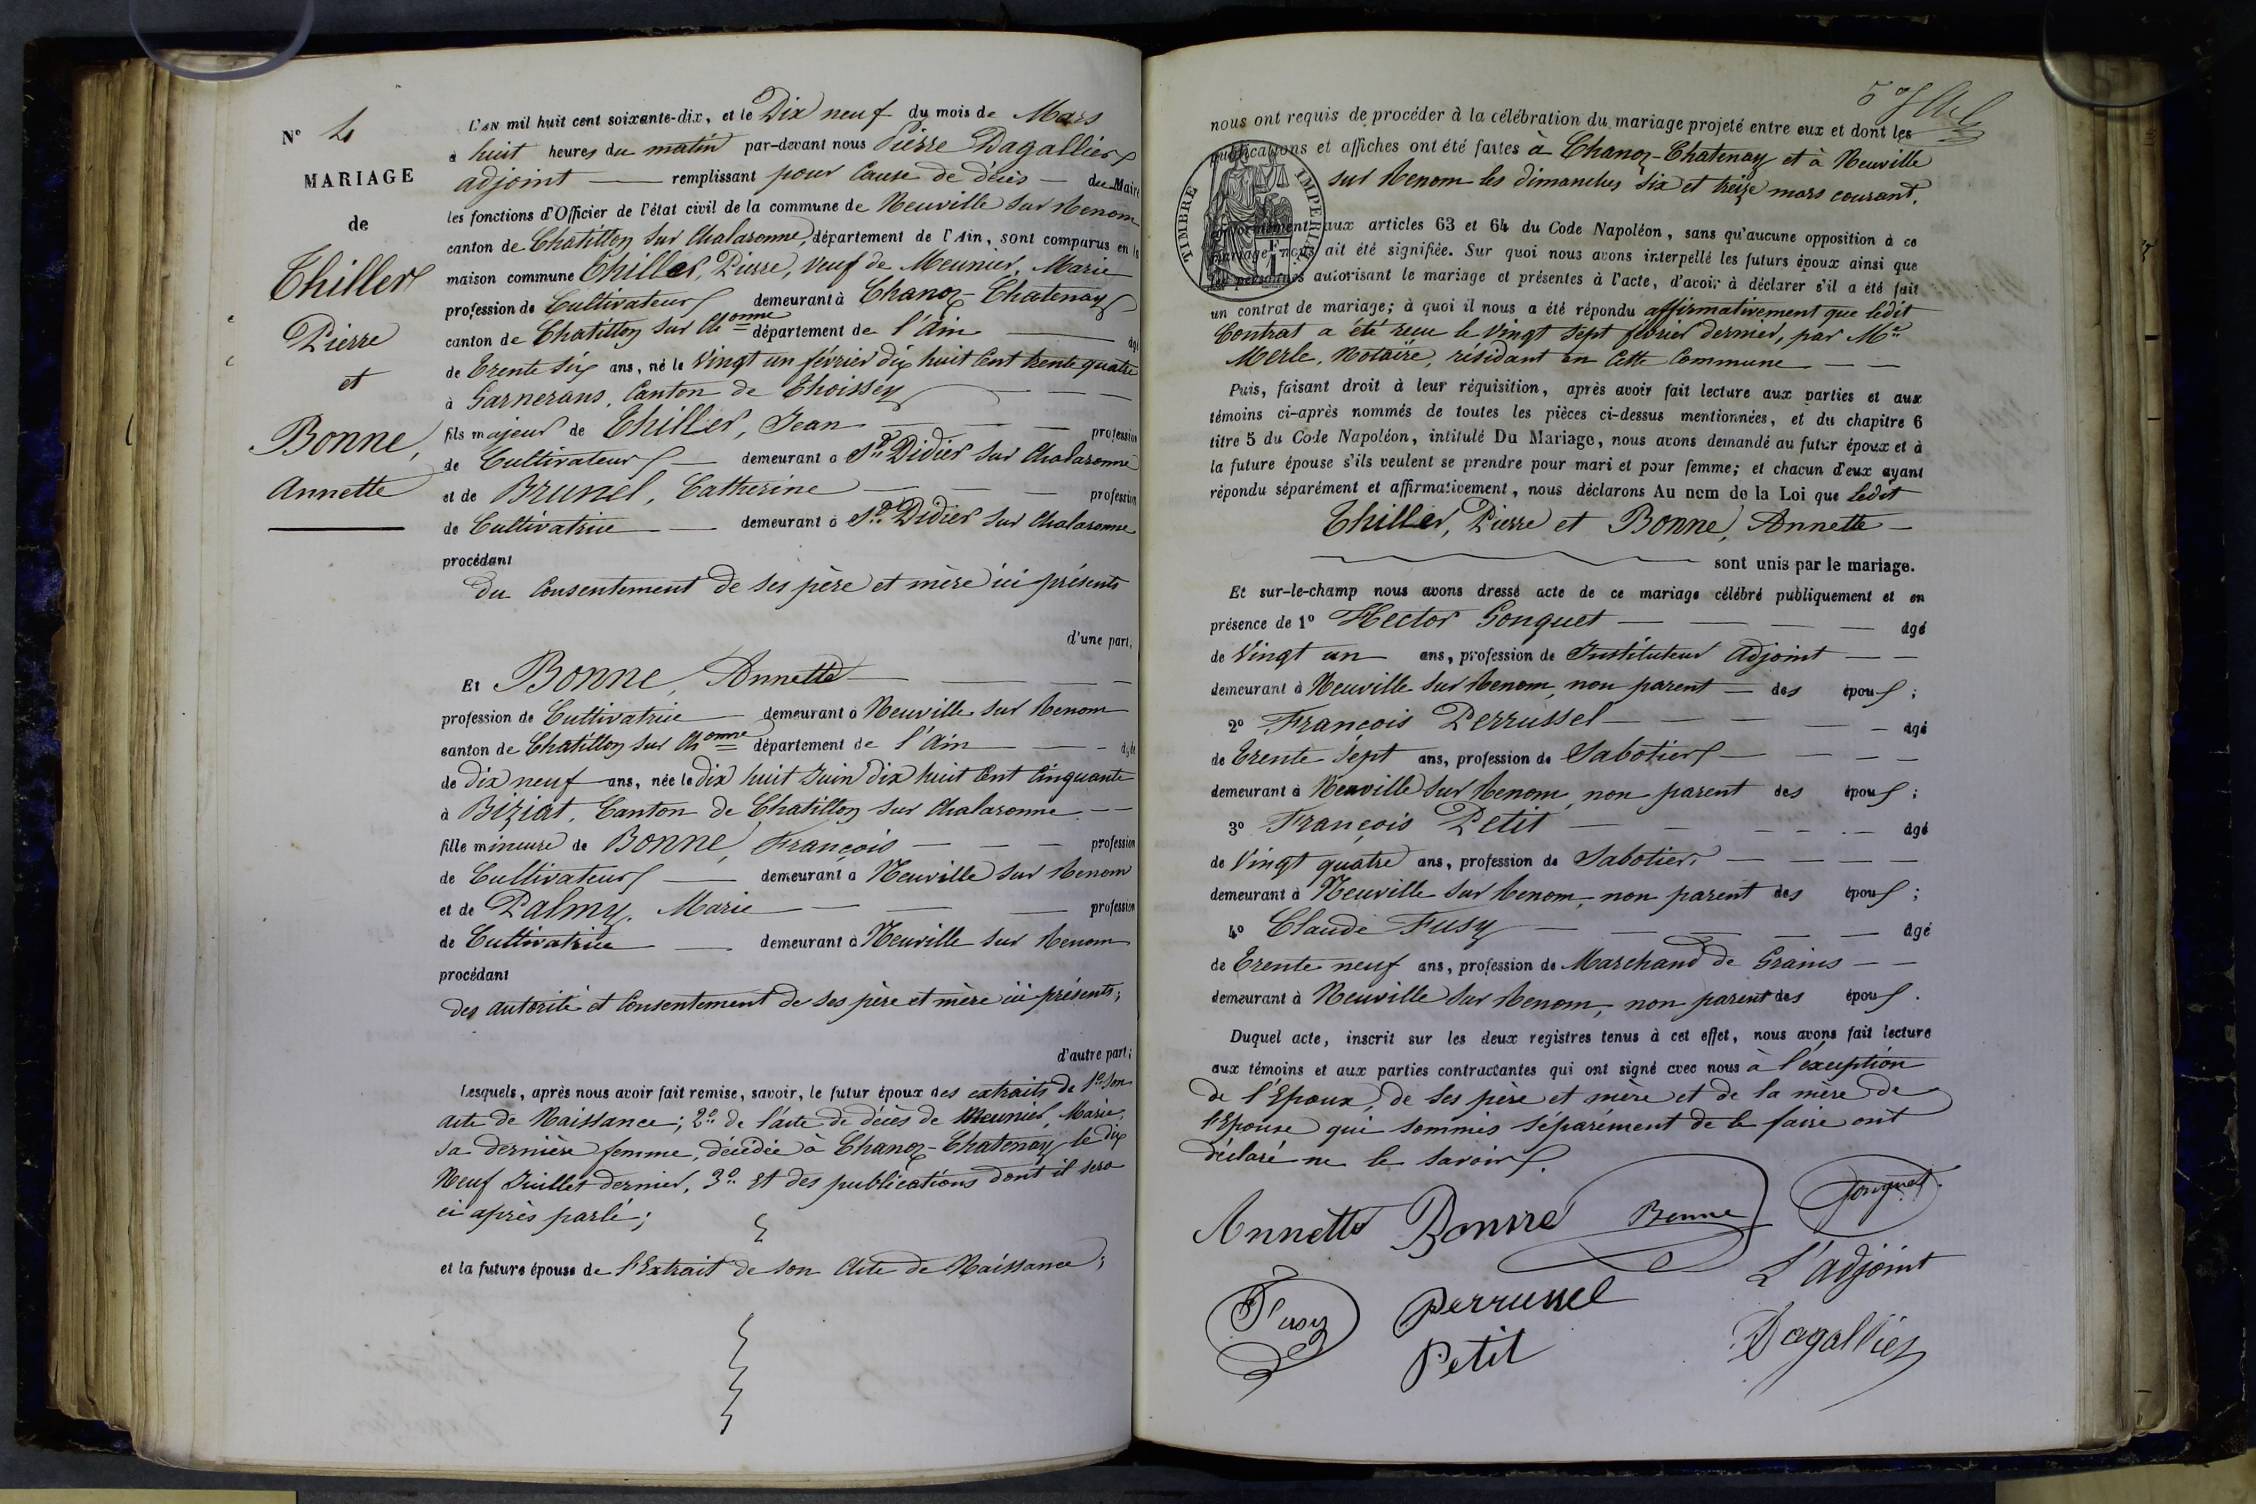 N° 4
MARIAGE
de
Thiller
Pierre
et
Bonne,
Annette
L'AN mil huit cent soixante-dix, et le Dix neuf du mois de Mars
à huit heures du matin par-devant nous Pierre Dagallier
adjoint — remplissant pour Cause de décès — du Maire
les fonctions d'Officier de l'état civil de la commune de Neuville sur Renom
canton de Chatillon sur Chalaronne, département de l'Ain, sont comparus en la
maison commune Thiller, Pierre, Veuf de Meunier, Marie
profession de Cultivateur demeurant à Chanoz-Chatenay
canton de Chatillon sur Chonne département de l'Ain — âgé
de Trente six ans, né le Vingt un février dix huit Cent trente quatre
à Garnerans, Canton de Thoissey — —
fils majeur de Thiller, Jean — — — profession
de Cultivateur — demeurant à St. Didier sur Chalaronne
et de Brunel, Catherine — — — profession
de Cultivatrice — demeurant à St. Didier sur Chalaronne
procédant
du Consentement de ses père et mère ici présents
d'une part,
Et Bonne, Annette — — — —
profession de Cultivatrice — demeurant à Neuville sur Renom
canton de Chatillon sur Chonne département de l'Ain — — — âgée
de dix neuf ans, née le dix huit Juin dix huit Cent Cinquante
à Biziat, Canton de Chatillon sur Chalaronne. — —
fille mineure de Bonne, François — — — profession
de Cultivateur — demeurant à Neuville sur Renom
et de Palmy, Marie — — — profession
de Cultivatrice — demeurant à Neuville sur Renom
procédant
des autorité et Consentement de ses père et mère ici présents;
d'autre part;
Lesquels, après nous avoir fait remise, savoir, le futur époux des extraits de 1° Son
acte de Naissance; 2° de l'acte de décès de Meunier, Marie,
sa dernière femme, décédée à Chanoz-Chatenay le dix
Neuf Juillet dernier, 3° Et des publications dont il sera
ci après parlé;
et la future épouse de l'Extrait de son Acte de Naissance;
nous ont requis de procéder à la célébration du mariage projeté entre eux et dont les
publications et affiches ont été faites à Chanoz-Chatenay et à Neuville
sur Renom les dimanches six et treize mars courant,
TIMBRE IMPERIAL
1 F
conformément aux articles 63 et 64 du Code Napoléon, sans qu'aucune opposition à ce
mariage nous ait été signifiée. Sur quoi nous avons interpellé les futurs époux ainsi que
les personnes autorisant le mariage et présentes à l'acte, d'avoir à déclarer s'il a été fait
un contrat de mariage; à quoi il nous a été répondu affirmativement que ledit
Contrat a été reçu le Vingt sept février dernier, par Me
Merle, Notaire, résidant en Cette Commune — —
Puis, faisant droit à leur réquisition, après avoir fait lecture aux parties et aux
témoins ci-après nommés de toutes les pièces ci-dessus mentionnées, et du chapitre 6
titre 5 du Code Napoléon, intitulé Du Mariage, nous avons demandé au futur époux et à
la future épouse s'ils veulent se prendre pour mari et pour femme; et chacun d'eux ayant
répondu séparément et affirmativement, nous déclarons Au nom de la Loi que Ledit
Thiller, Pierre et Bonne, Annette —
sont unis par le mariage.
Et sur-le-champ nous avons dressé acte de ce mariage célébré publiquement et en
présence de 1° Hector Gonguet — — — — âgé
de Vingt un ans, profession de Instituteur Adjoint — —
demeurant à Neuville sur Renom, non parent — des époux;
2° François Perrussel — — — — âgé
de Trente Sept ans, profession de Sabotier — — —
demeurant à Neuville sur Renom, non parent des époux;
3° François Petit — — — — — âgé
de Vingt quatre ans, profession de Sabotier, — — — —
demeurant à Neuville sur Renom, non parent des époux;
4° Claude Fusy — — — — — âgé
de Trente neuf ans, profession de Marchand de Grains — —
demeurant à Neuville sur Renom, non parent des époux.
Duquel acte, inscrit sur les deux registres tenus à cet effet, nous avons fait lecture
aux témoins et aux parties contractantes qui ont signé avec nous à l'exception
de l'Epoux, de ses père et mère et de la mère de
l'Epouse qui sommés séparément de le faire ont
déclaré ne le savoir.
Annette Bonne Bonne Gonguet
L'adjoint
Fusy Perrussel
Petit Dagallier